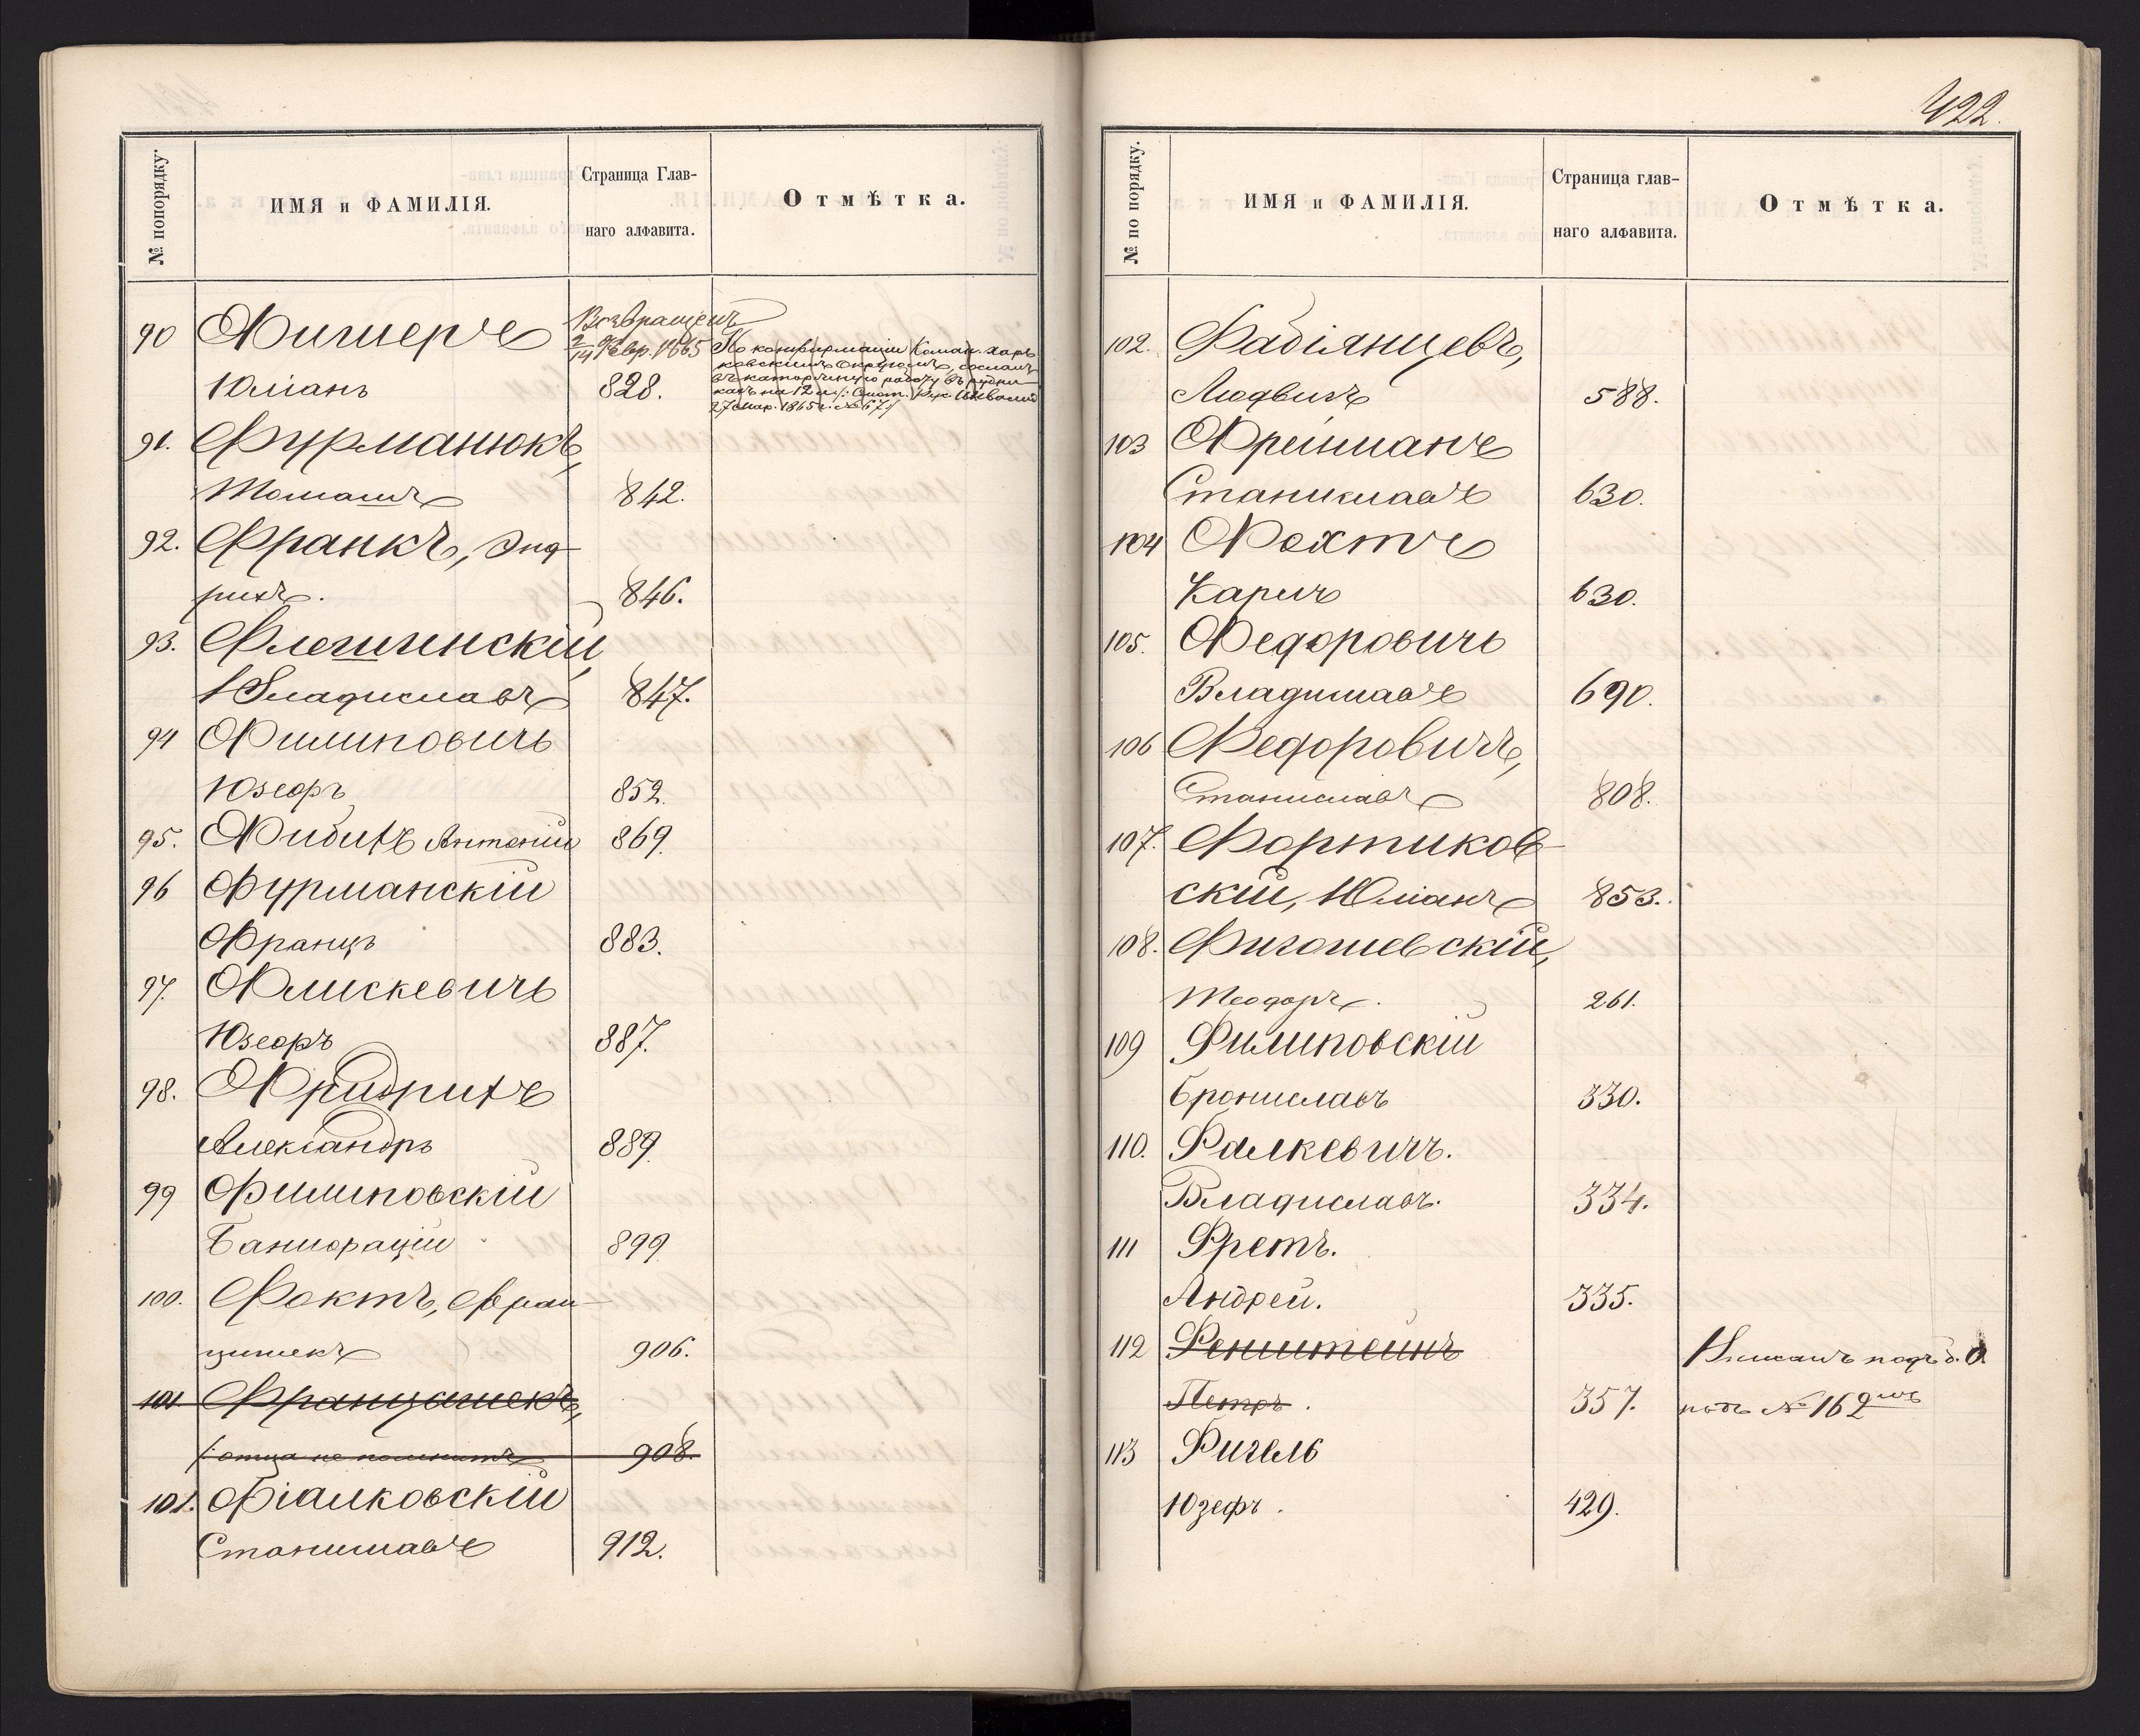 422.
№ попорядку.
ИМЯ и ФАМИЛІЯ.
Страница Глав-
наго алфавита.
Отмѣтка.
90 Фишеръ Возвращенъ
2/14 Февр. 1865 По конфирмаціи Коман. Харь
ковскимъ Округомъ, сосланъ
Юліанъ 828. въ каторжную работу въ рудни
кахъ на 12 л.
27 Мар. 1865 г. № 67/
91. Фурманюкъ,
Томашъ 842.
92. Франкъ, Энд-
рихъ. 846.
93. Флешинскій,
Владиславъ 847.
94 Филиповичъ
Юзефъ 852.
95. Фибихъ Антоній 869.
96 Фурманскій
Францъ 883.
97. Флискевичъ
Юзефъ 887.
98. Фридрихъ
Александръ 889.
99 Филиповскій
899
100. Фоктъ, Фран-
цишекъ 906.
101 Францишекъ,
/: отца не помнитъ 908.
101. Фіалковскій
Станиславъ 912.
№ по порядку.
ИМЯ и ФАМИЛІЯ.
Страница глав-
наго алфавита.
Отмѣтка.
102. Фабіянцевъ,
Людвигъ 588.
103 Фрейманъ
Станиславъ 630.
104 Фохтъ
Карлъ 630.
105. Федоровичъ
Владиславъ 690.
106 Федоровичъ,
Станиславъ 808.
107. Фортиков-
скій, Юліанъ 853.
108. Фигошевскій,
Теодоръ. 261.
109 Филиповскій
Брониславъ 330.
110. Фалкевичъ.
Владиславъ. 334.
111 Фретъ.
Андрей. 335.
112 Фенштейнъ
Петръ. 357. подъ № 162мъ
113 Фигель
Юзефъ. 429.